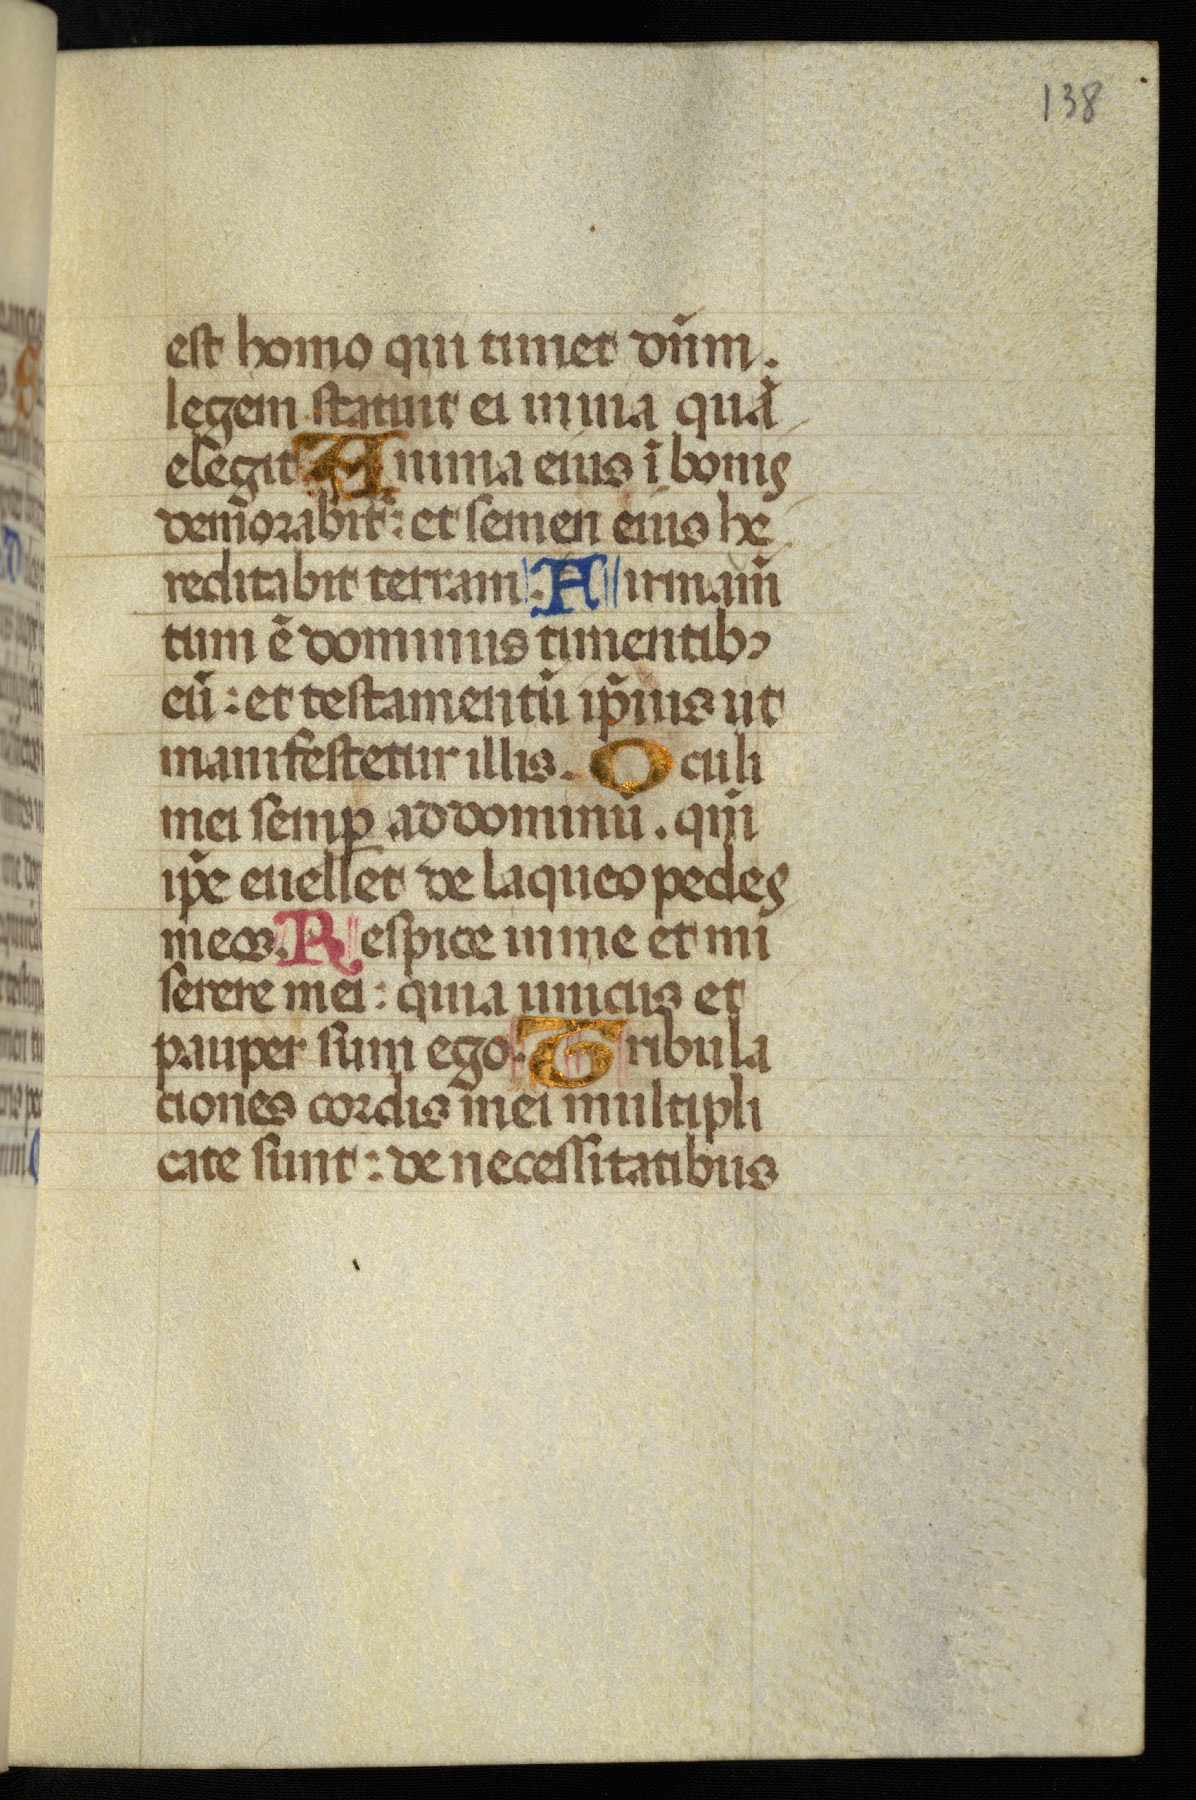 138
est homo qui timet dn̄m.
legem statuit ei inuia quā
elegit Anima eius ī bonis
demorabit᷑: et semen eius he
reditabit terram. Airmam̄
tum ē dominus timentibꝫ
eū: et testamentū ip̄ius ut
manifestetur illis. Oculi
mei semꝑ ad dominū. qm̄
ip̄e euellet de laqueo pedes
meos. Respice in me et mi
serere mei: quia unicus et
pauper sum ego. Tribula
ciones cordis mei multipli
cate sunt: de necessitatibus